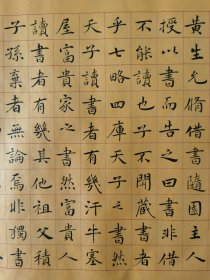 黃生允修借書隨園主人
授以書而告之曰書非借
不能讀也子不聞藏書者
乎七略四庫天子之書然
天子讀書者有幾汗牛塞
屋富貴家之書然富貴人
讀書者有幾其他祖父積
子孫棄者無論焉非獨書